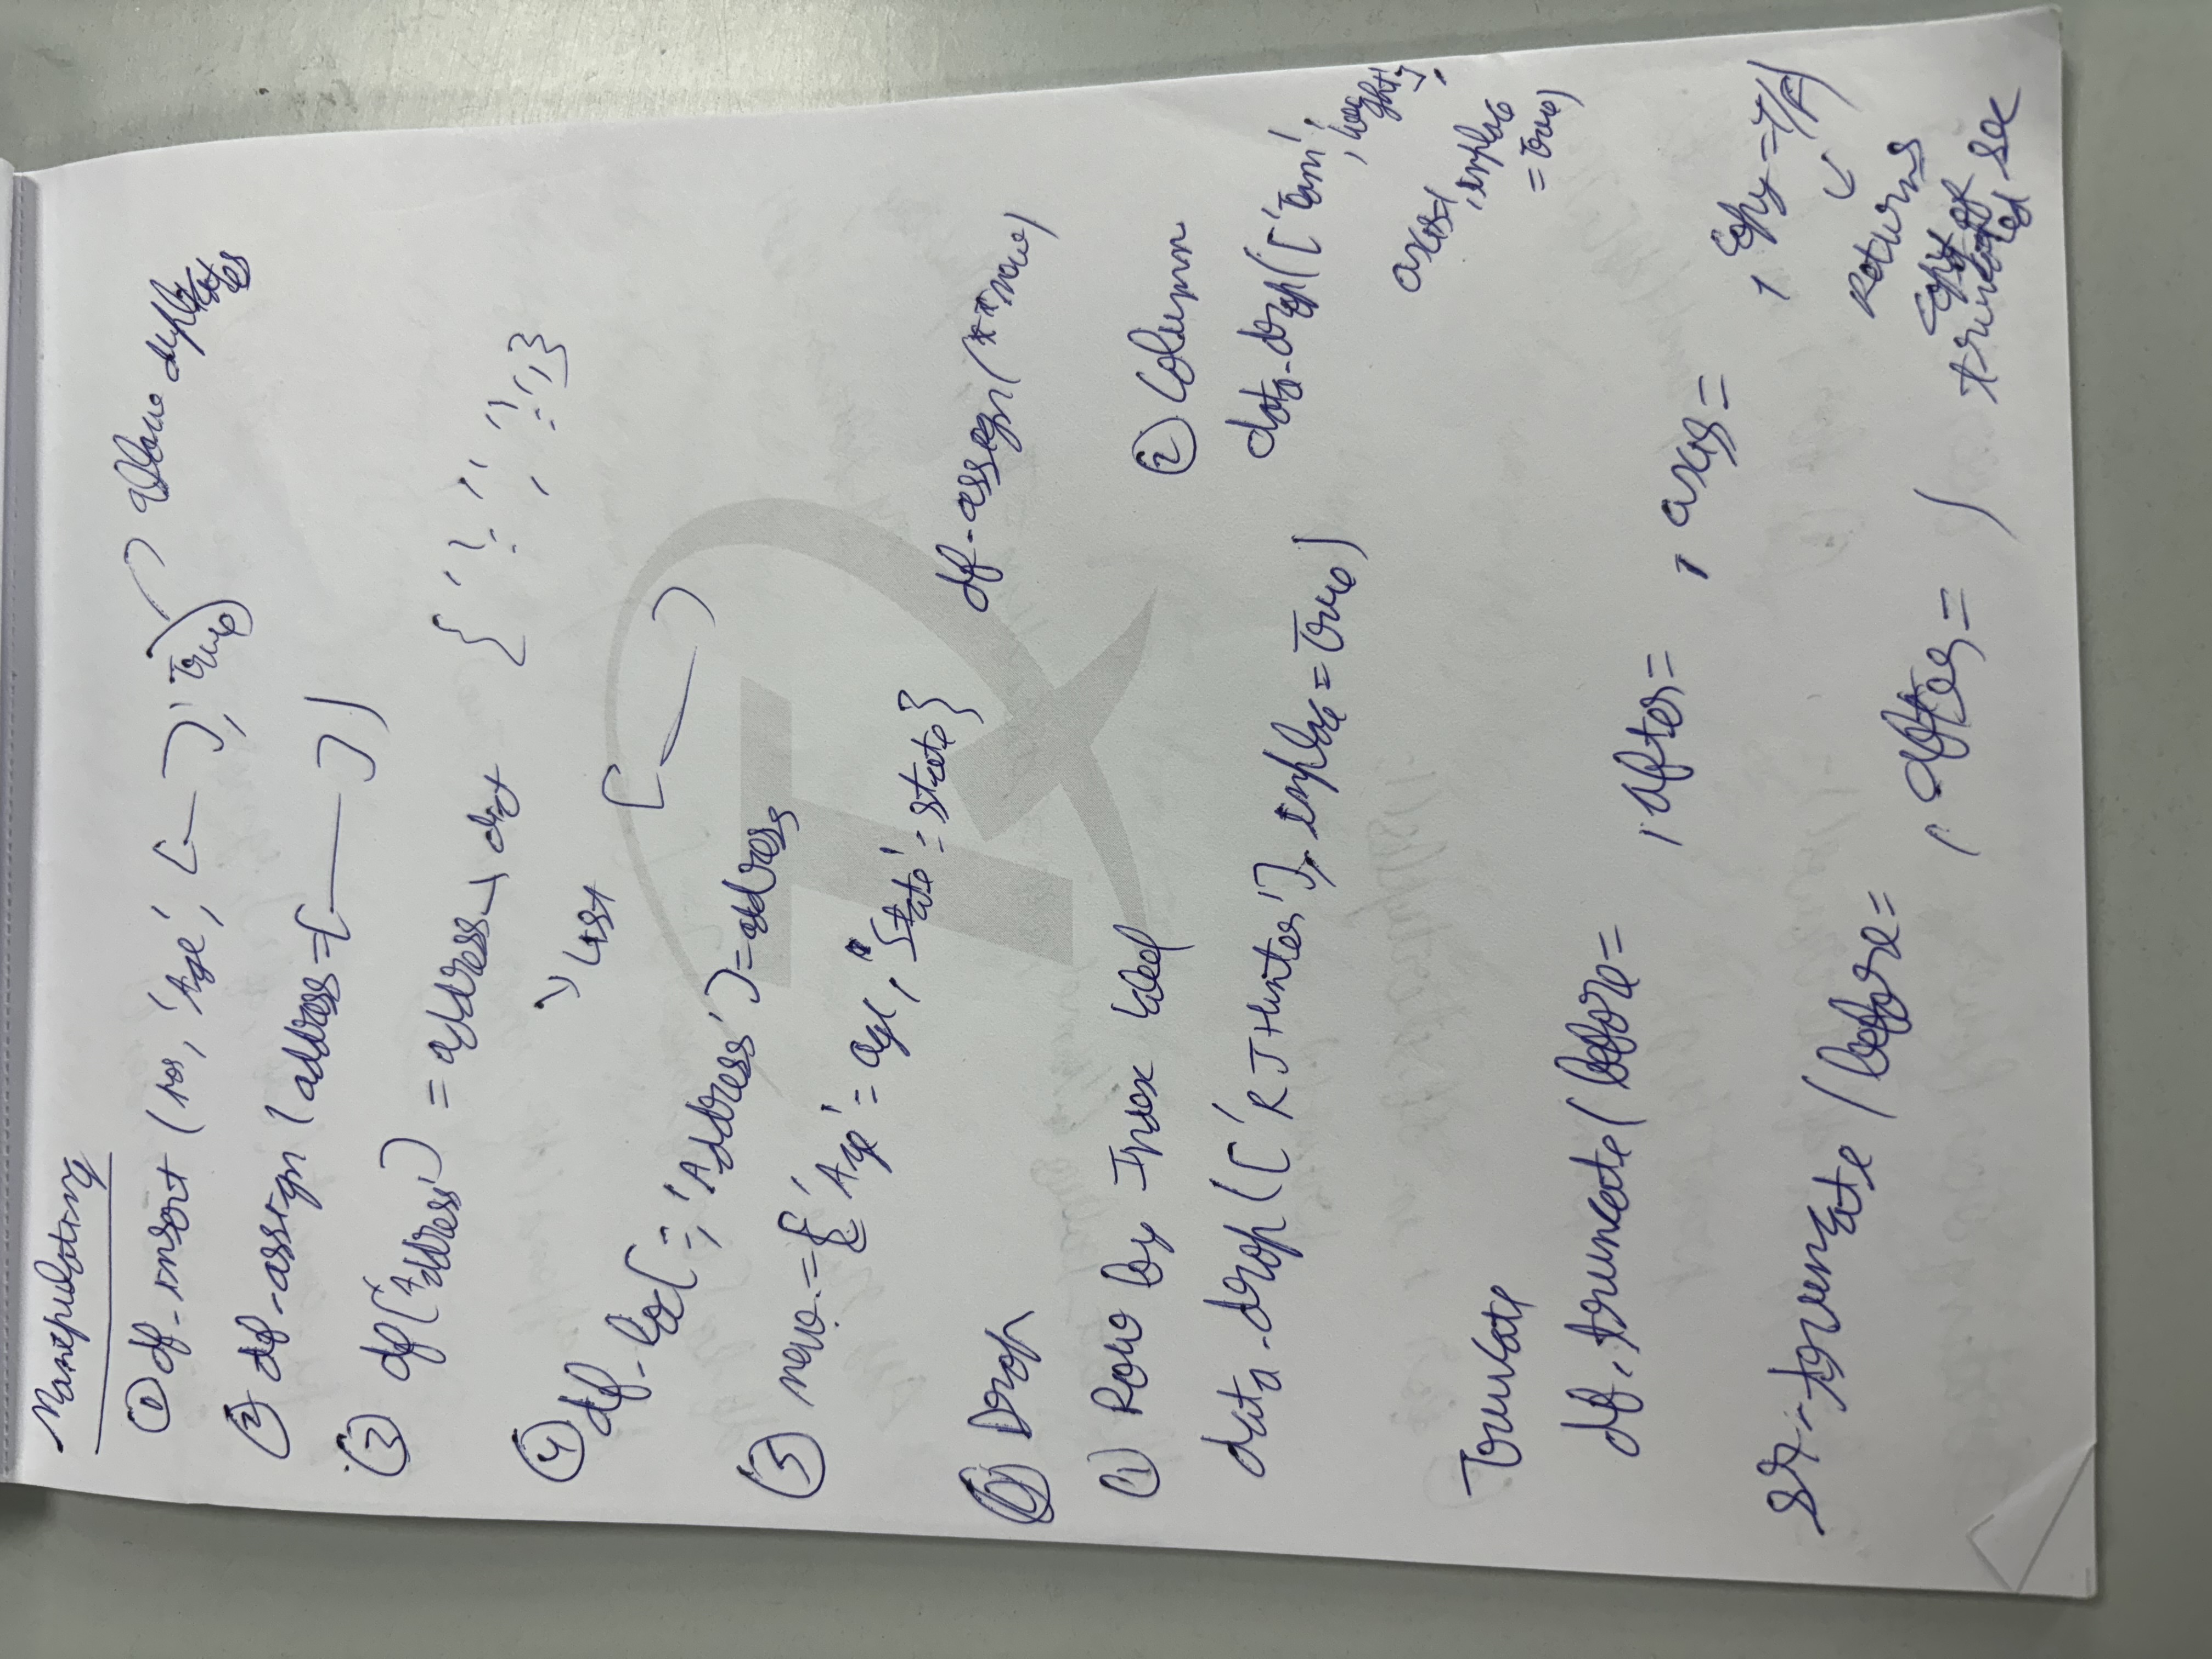 Manipulating
① df.insert (pos, 'Age', [—], True) allow duplicates
② df.assign (address=[——])
③ df['Address'] = address → dict { ' ' : ' ', ' ' : ' ' }
→ List [—]
④ df.loc[:, 'Address'] = address
⑤ new = { 'Age' = age, 'State' = state }
df.assign(**new)
Drop
① Row by Index label
data.drop(['RJ Hunter'], inplace=True)
② Column
data.drop(['Team',
'weight'],
axis=1, inplace
=True)
Truncate
df.truncate(before= , after= , axis= , copy=T/F)
↓
Returns
copy of
truncated
sr.truncate(before= , after= )